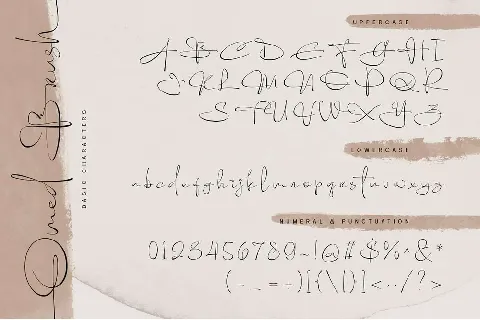 Qined Brush
BASIC CHARACTERS
UPPERCASE
A B C D E F G H I
J K L M N O P Q R
S T U V W X Y Z
LOWERCASE
abcdefghijklmnopqrstuvwxyz
NUMERAL & PUNCTUYTION
0123456789~!@#$%^&*
(-_=-)[{\|}]<../?>